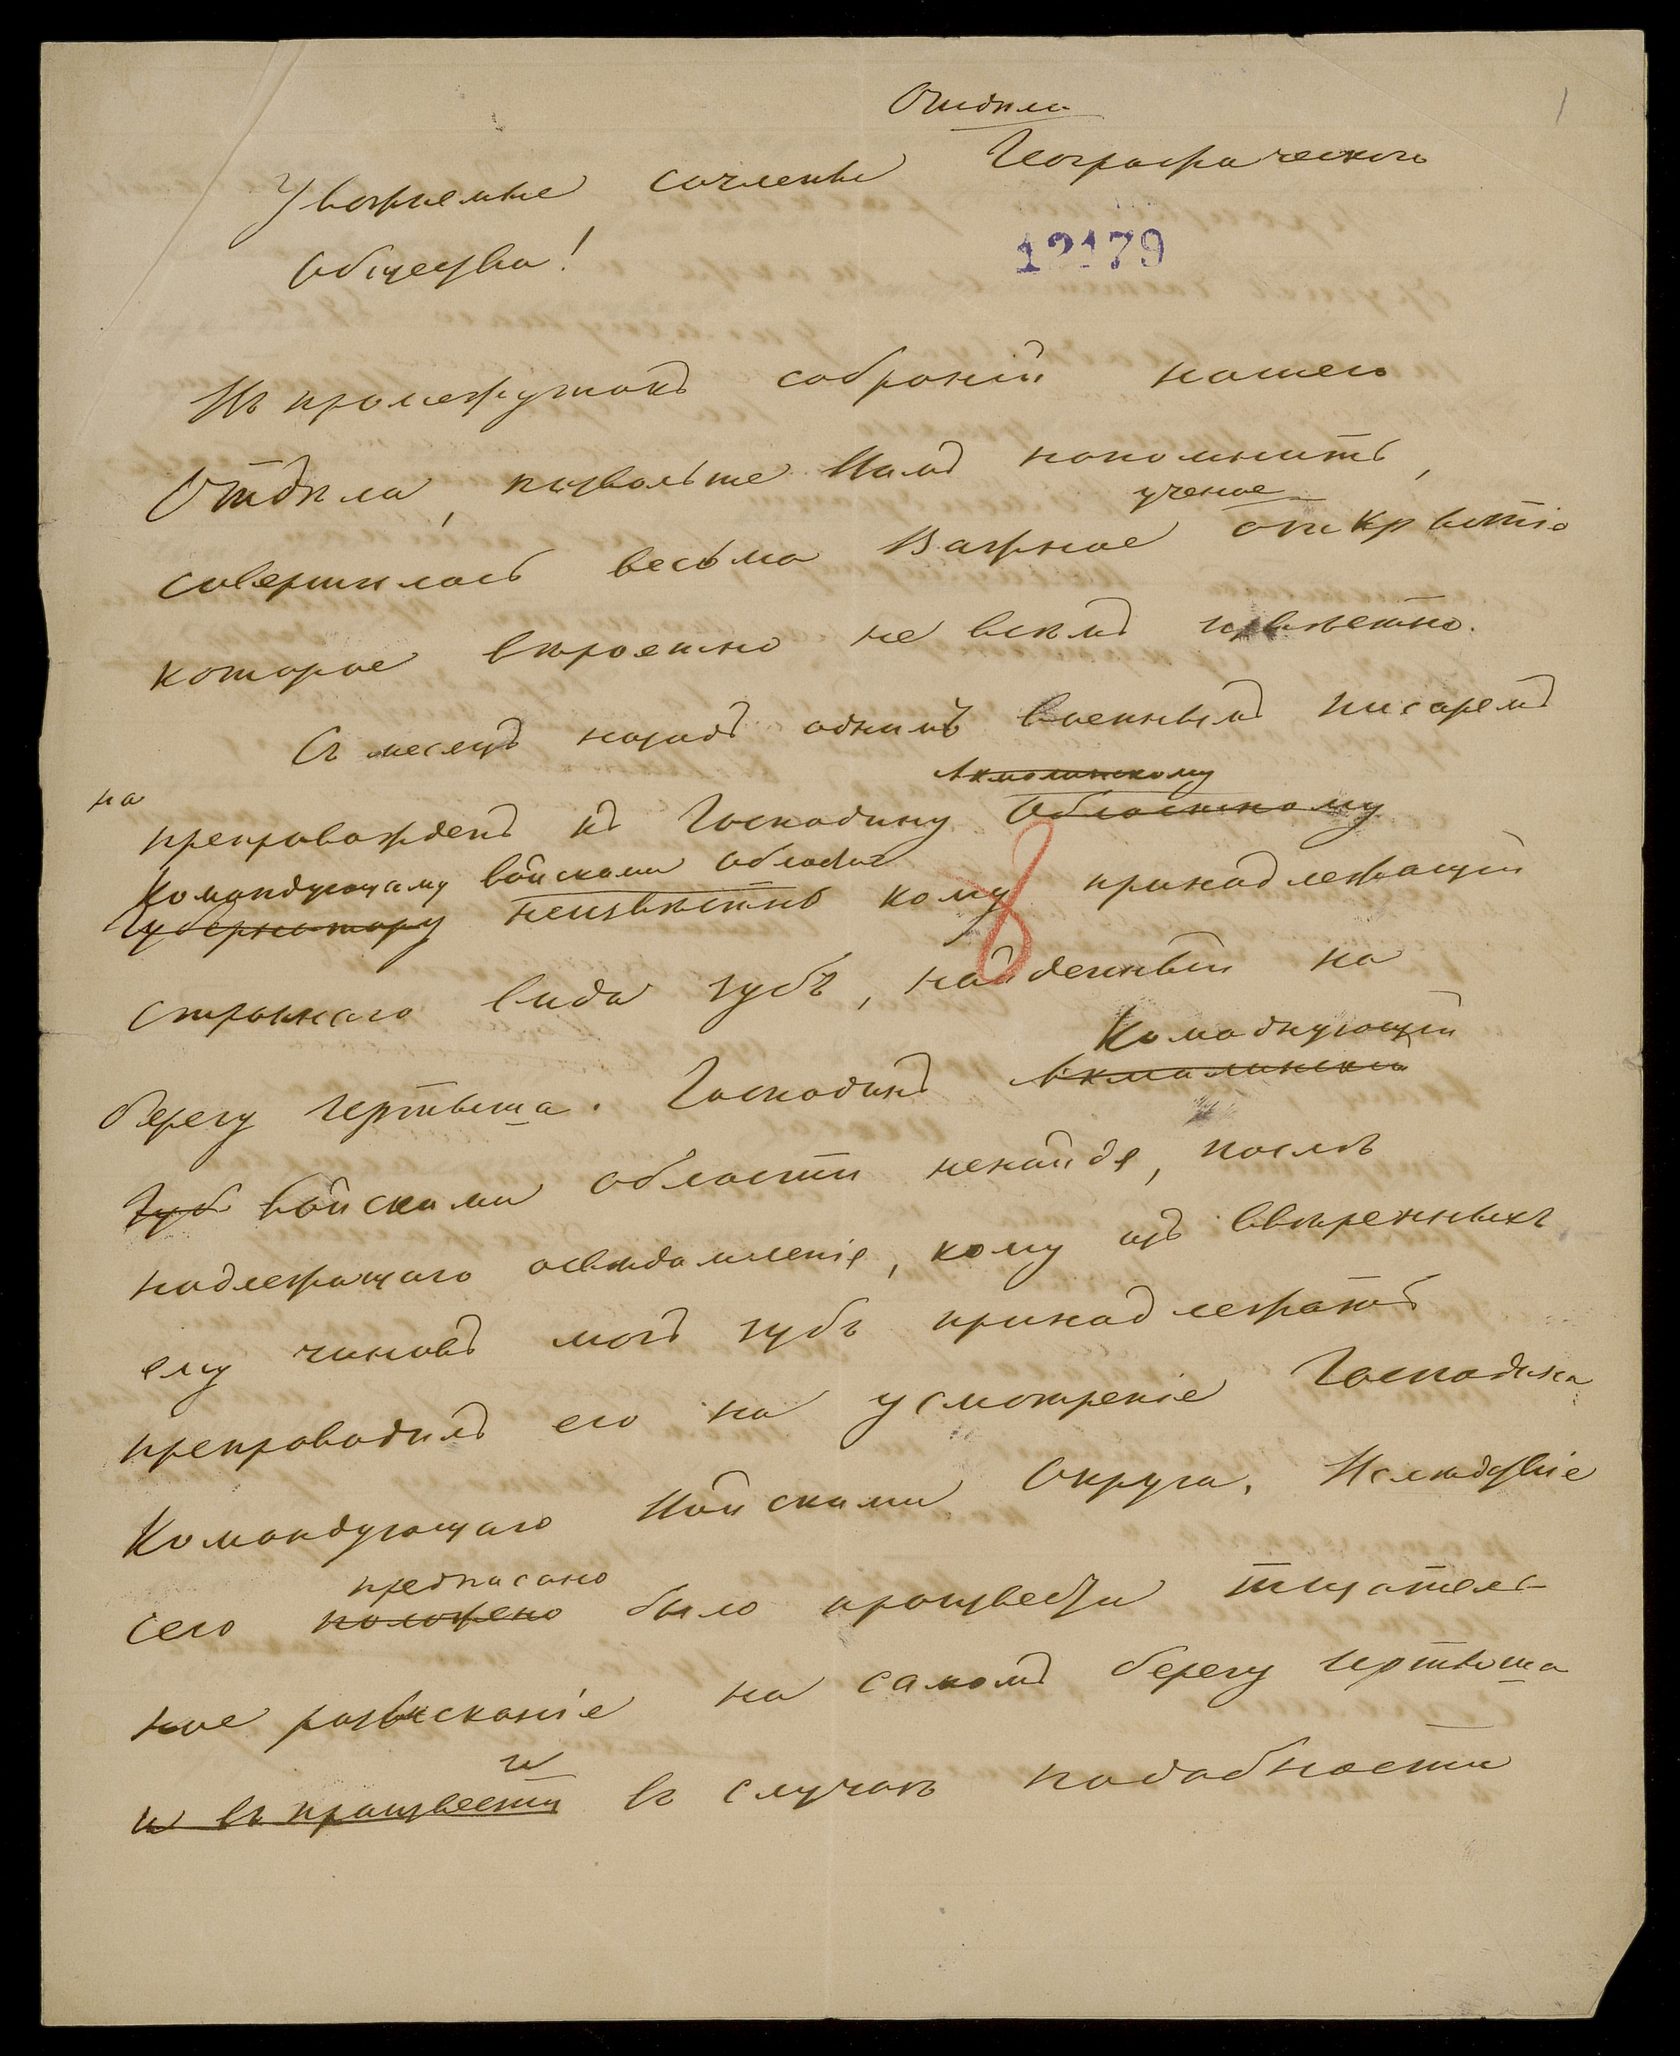 Отдѣла
1
Уважаемые сочлены Географическаго
Общества!
12179
Въ промежутокъ собраній нашего
Отдѣла, позвольте Вамъ напомнить,
ученое
совершилось весьма важное открытіе
которое вѣроятно не всѣмъ извѣстно.
Съ месяцъ назадъ однимъ военнымъ писаремъ
на
Акмолинскому
препровожденъ къ Господину Областному
Командующему войсками области
Губернатору неизвѣстно кому принадлежащій
страннаго вида зубъ, найденный на
берегу Иртыша. Господинъ Акмолинскій
Командующій
Губ войсками области ненайдя, послѣ
надлежащаго освѣдомленія, кому изъ ввѣренныхъ
ему чиновъ могъ зубъ принадлежать
препроводилъ его на усмотреніе Господина
Командующаго Войсками Округа. Вслѣдствіе
предписано
сего положено было произвести тщатель-
ное розысканіе на самомъ берегу Иртыша
и
и въ произвести въ случаѣ надобности